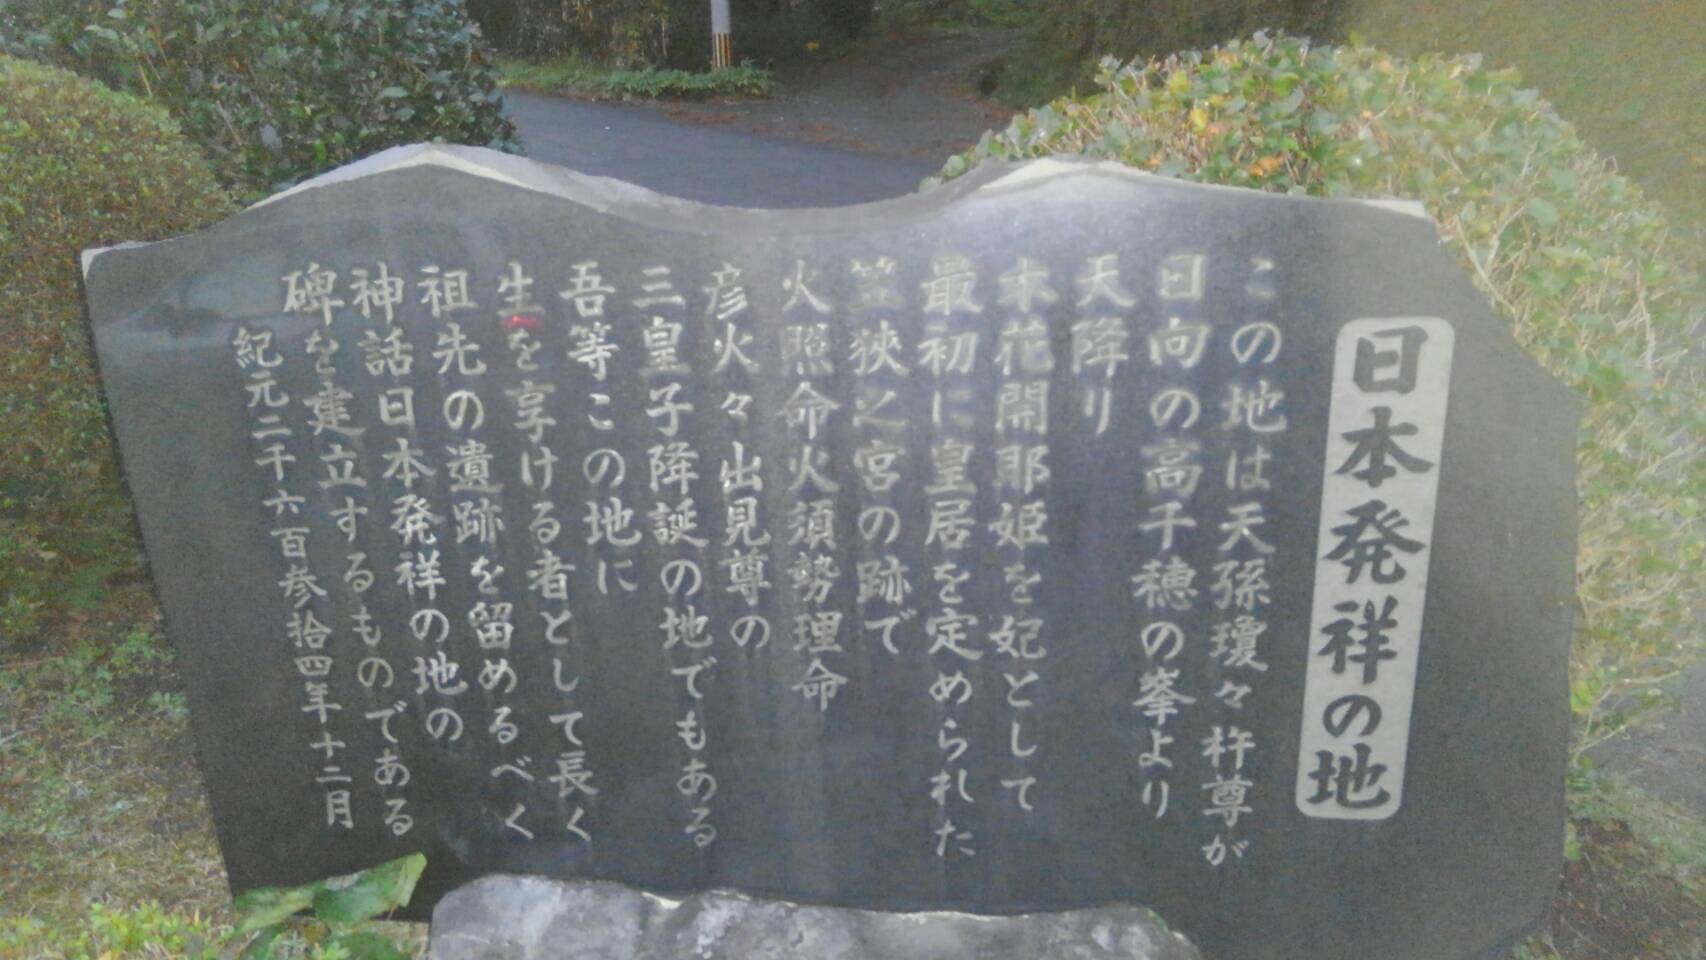 日本発祥の地
この地は天孫瓊々杵尊が
日向の高千穂の峯より
天降り
木花開耶姫を妃として
最初に皇居を定められた
笠狭之宮の跡で
火照命火須勢理命
彦火々出見尊の
三皇子降誕の地でもある
吾等この地に
生を享ける者として長く
祖先の遺跡を留めるべく
神話日本発祥の地の
碑を建立するものである
紀元二千六百参拾四年十二月